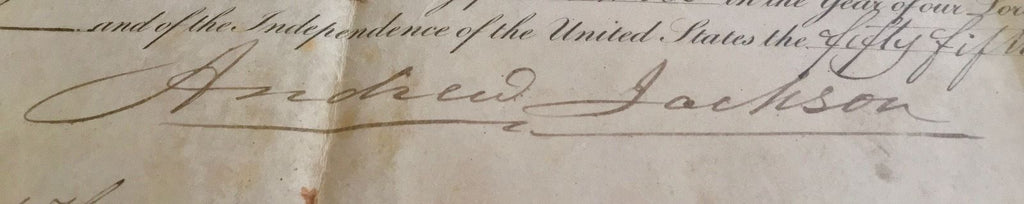 in the Year of our Lor
and of the Independence of the United States the fifty fifth
Andrew Jackson